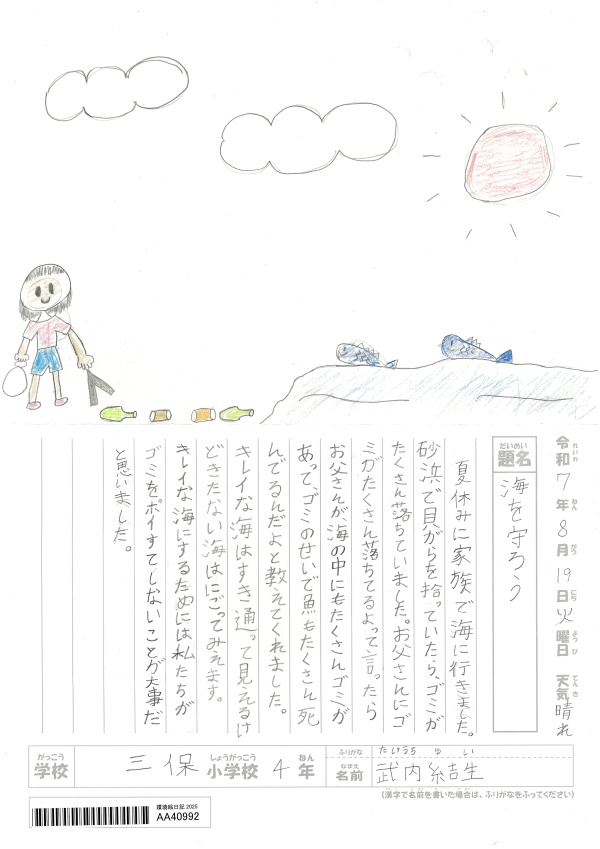 令和7年8月19日火曜日 天気晴れ
れいわ ねん がつ にち ようび てんき
だいめい
題名 海を守ろう
夏休みに家族で海に行きました。
砂浜で貝がらを拾っていたら、ゴミが
たくさん落ちていました。お父さんにゴ
ミがたくさん落ちてるよって言ったら
お父さんが、海の中にもたくさんゴミが
あって、ゴミのせいで魚もたくさん死
んでるんだよと教えてくれました。
キレイな海はすき通って見えるけ
どきたない海はにごってみえます。
キレイな海にするためには私たちが
ゴミをポイすてしないことが大事だ
と思いました。
がっこう しょうがっこう ねん
学校 三保小学校 4年
ふりがな たけうち ゆい
なまえ
名前 武内結生
(漢字で名前を書いた場合は、ふりがなをふってください)
環境絵日記2025
AA40992